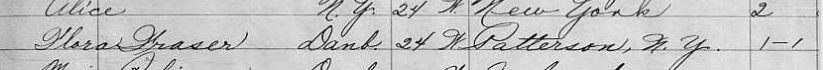 Alice N.Y. 24 W. New York 2
Flora Fraser Danb. 24 W. Patterson, N.Y. 1-1